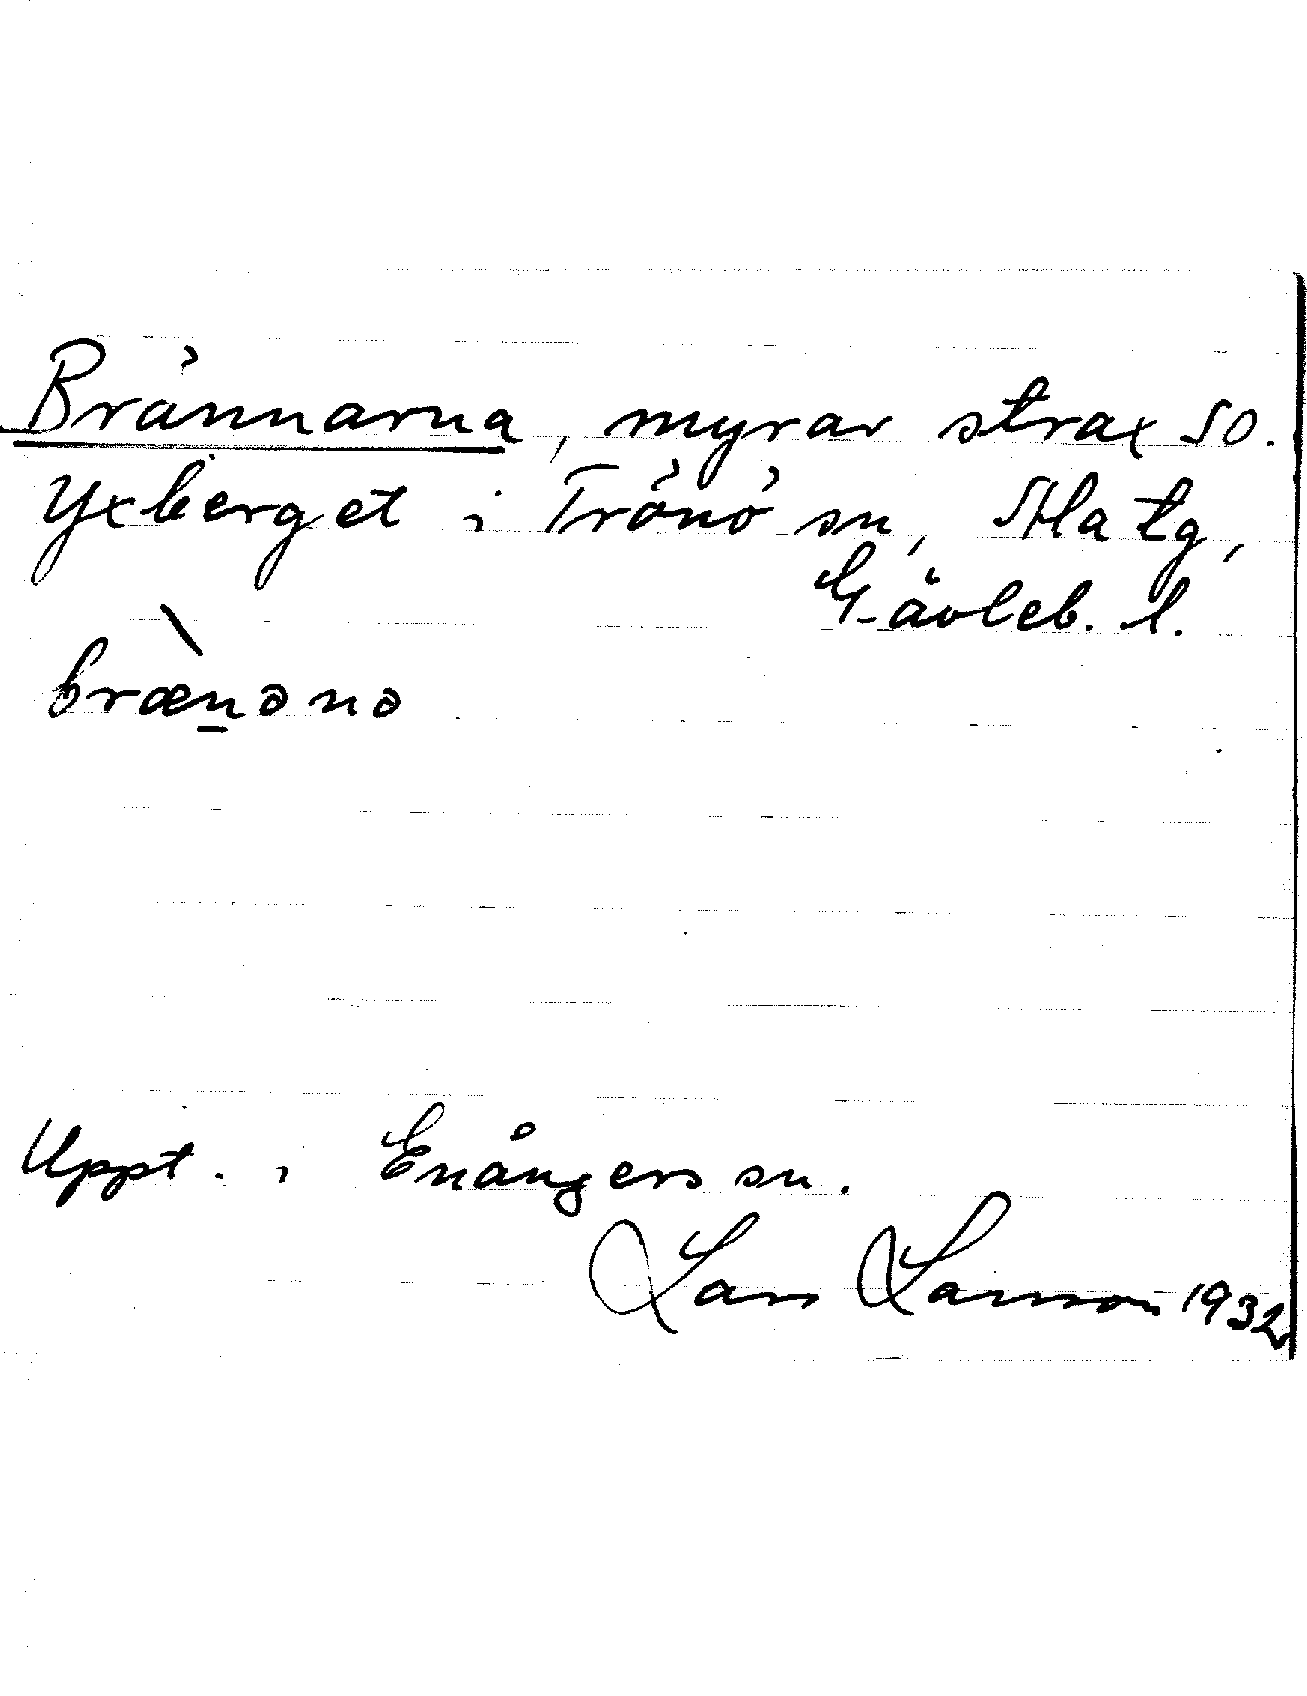 Brännarna, myrar strax SO.
Yxberget i Trönö sn, Ala tg,
Gävleb. l.
bræ̀n̲ənə
Uppt. i Enångers sn.
Lars Larsson 1932